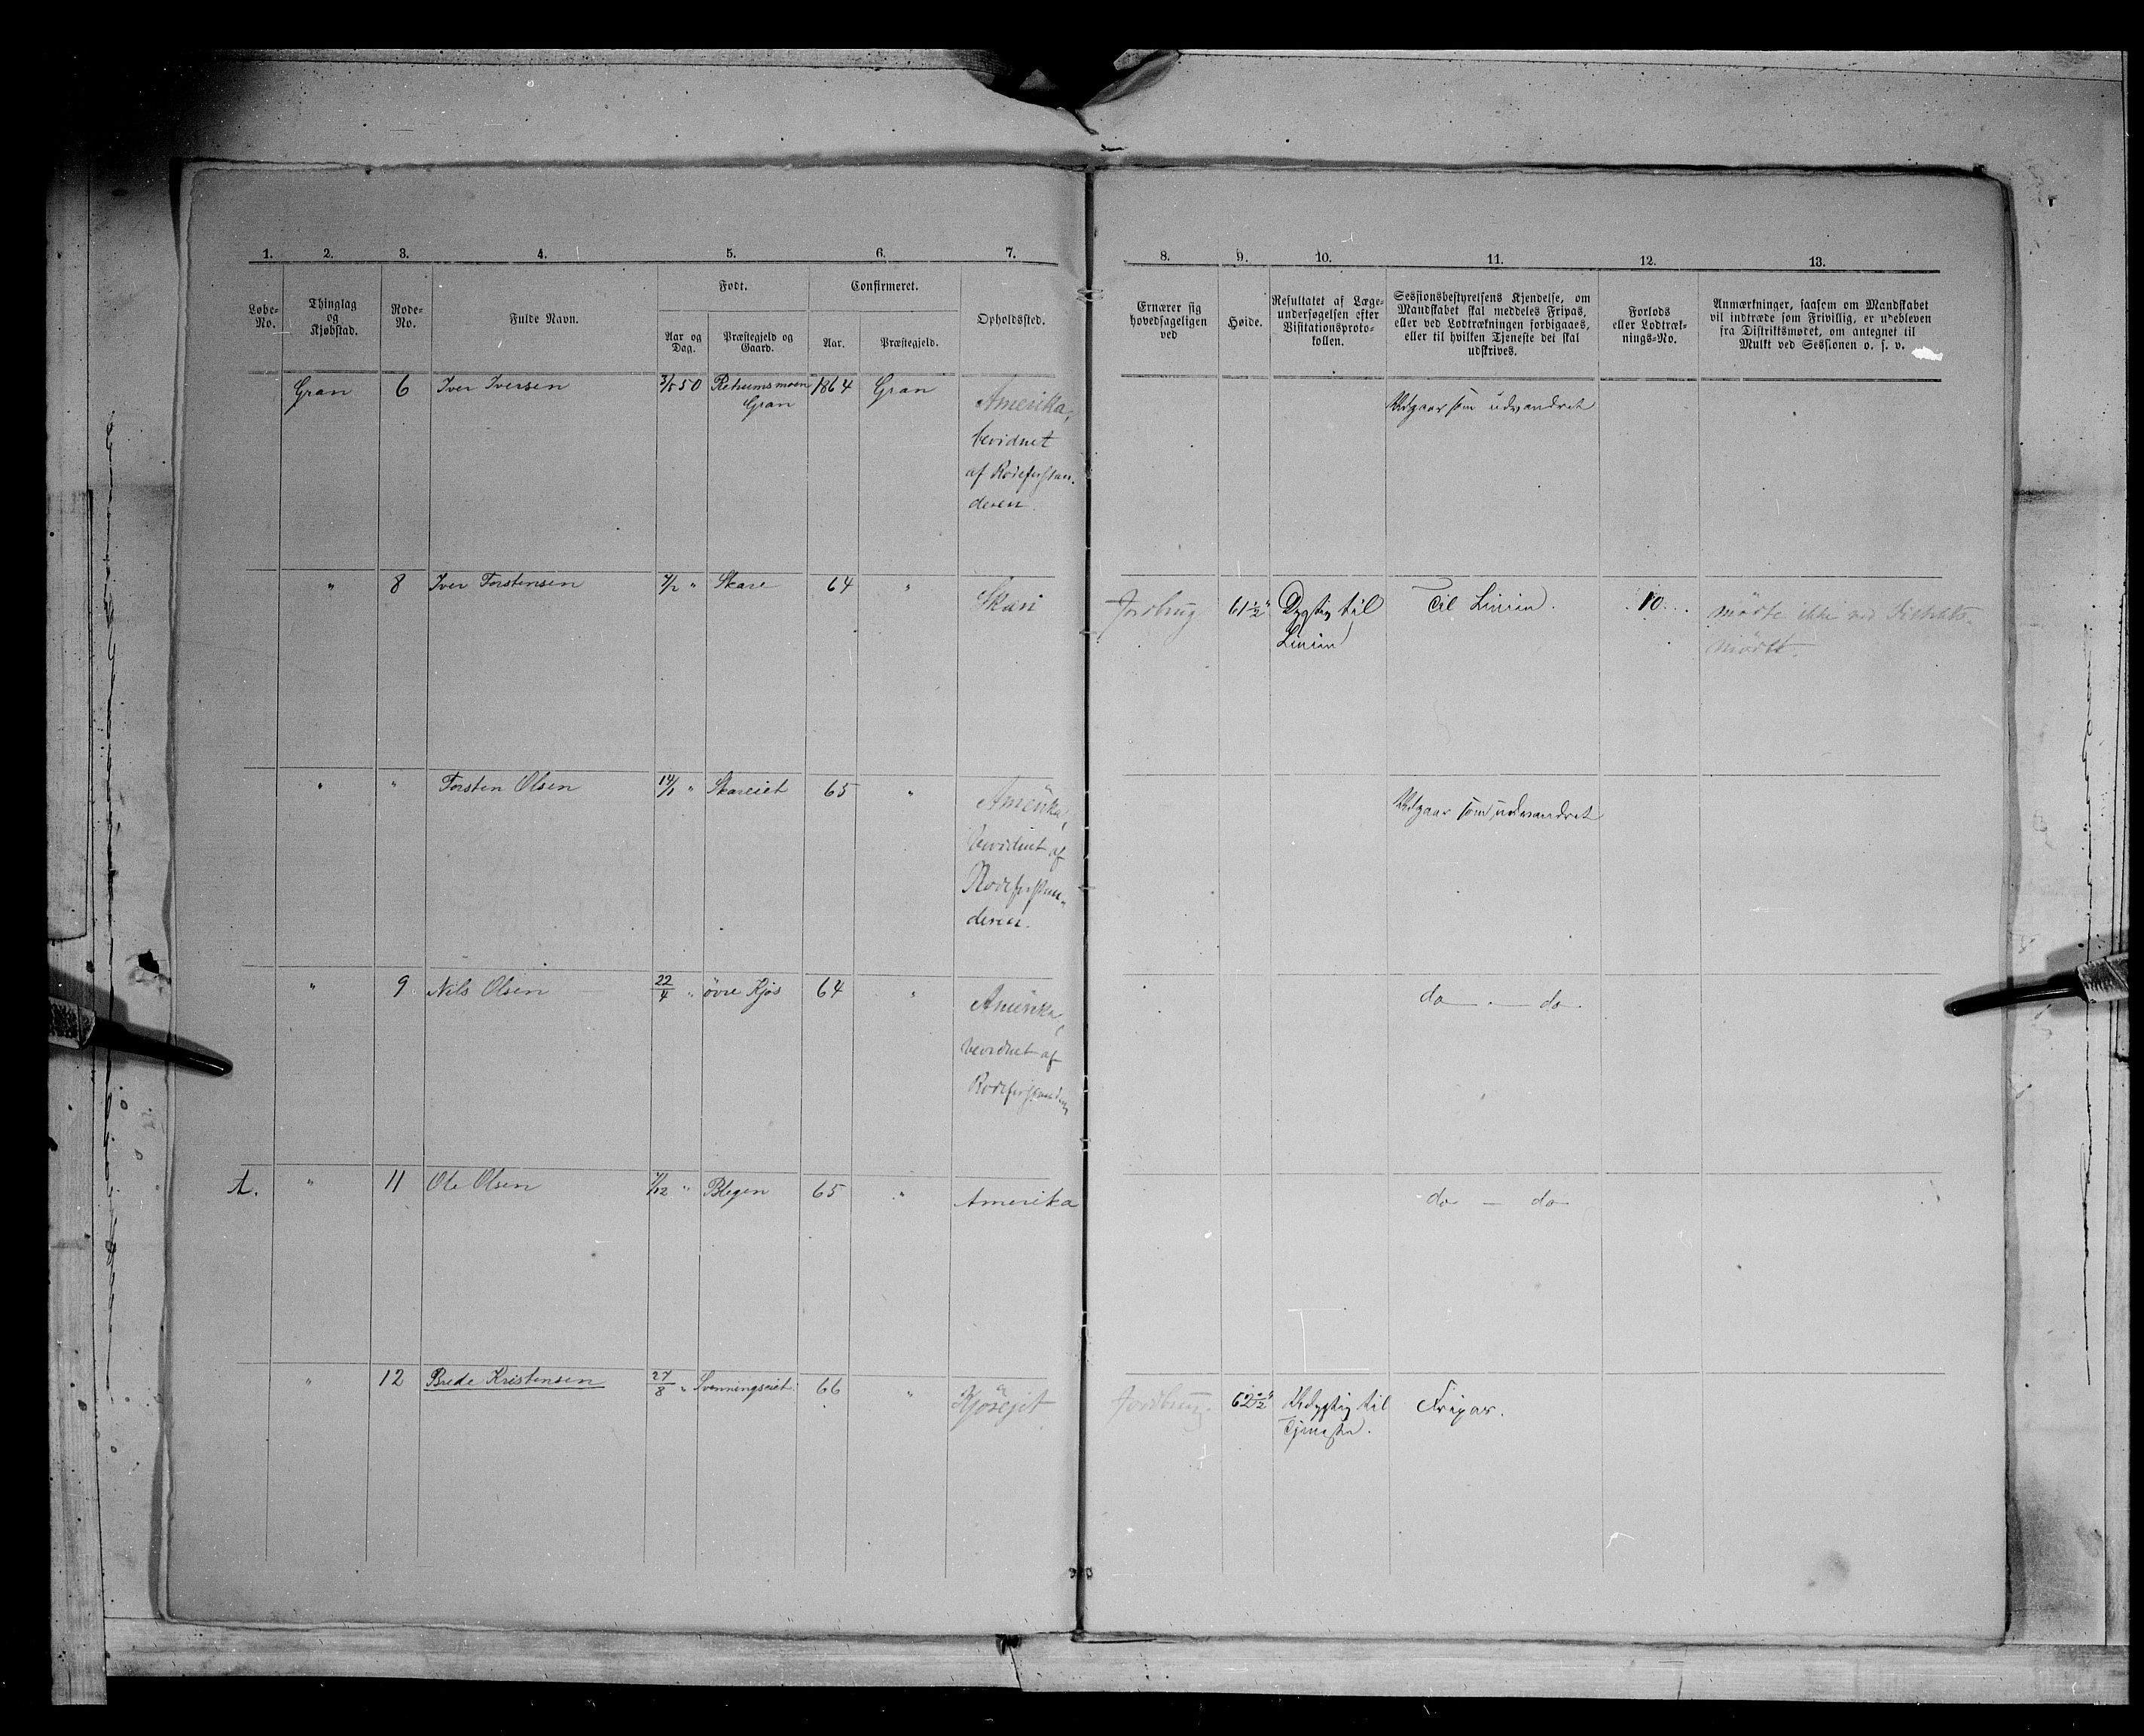 1. 2. 3. 4. 5. 6. 7. 8. 9. 10. 11. 12. 13.
Løbe-No.
Thinglag og Kjøbstad.
Rode-No.
Fulde Navn.
Født.
Aar og Dag.
Præstegjeld og Gaard.
Confirmeret.
Aar.
Præstegjeld.
Opholdssted.
Ernærer sig hovedsageligen ved
Høide.
Resultatet af Læge-undersøgelsen efter Visitationsproto-kollen.
Sessionsbestyrelsens Kjendelse, om Mandskabet skal meddeles Fripas, eller ved Lodtrækningen forbigaaes, eller til hvilken Tjeneste det skal udskrives.
Forlods eller Lodtræk-nings-No.
Anmærkninger, saasom om Mandskabet vil indtræde som Frivillig, er udebleven fra Distriktsmødet, om antegnet til Mulkt ved Sessionen o. s. v.
Gran 6 Iver Iversen 50 Gran 1864 Gran Amerika, Udgaar som udvandret
bevidnet
af Rodeforstan-
deren.
" 8 Iver Torstensen " Skare 64 " Skari Jordbrug 61½" Dygtig til Til Linien. 10. mødte ikke ved Distrikts-
Linien mødet.
" " Torsten Olsen 14/1 " Skareiet 65 " Amerika, Udgaar som udvandret
bevidnet af
Rodeforstan-
deren.
" 9 Nils Olsen 22/4 " övre Kjös 64 " Amerika, do — do
bevidnet af
Rodeforstanderen
A. " 11 Ole Olsen " Blegen 65 " Amerika do — do
" 12 Brede Kristensen 27/8 " Svenningseiet 66 " Kjösejet Jordbrug. 62½" Udygtig til Fripas.
Tjeneste.